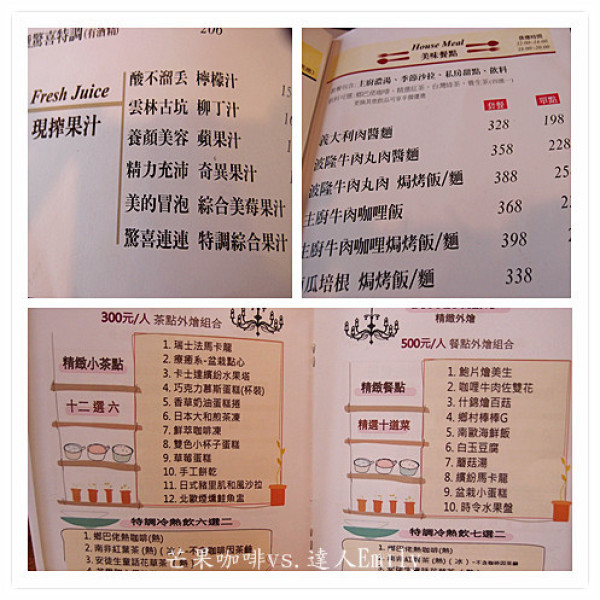 驚喜特調(有酒精) 206
Fresh Juice
現搾果汁
酸不溜丟 檸檬汁
雲林古坑 柳丁汁
養顏美容 蘋果汁
精力充沛 奇異果汁
美的冒泡 綜合美莓果汁
驚喜連連 特調綜合果汁
House Meal
美味餐點
主廚濃湯、季節沙拉、私房甜點、飲料
套餐 單點
義大利肉醬麵 328 198
波隆牛肉丸肉醬麵 358 228
波隆牛肉丸肉 焗烤飯/麵 388
主廚牛肉咖哩飯 368
主廚牛肉咖哩焗烤飯/麵 398
瓜培根 焗烤飯/麵 338
300元/人 茶點外燴組合
精緻小茶點
十二選六
1. 瑞士法馬卡龍
2. 療癒系-盆栽點心
3. 卡士達繽紛水果塔
4. 巧克力慕斯蛋糕(杯裝)
5. 香草奶油蛋糕捲
6. 日本大和煎茶凍
7. 鮮萃咖啡凍
8. 雙色小杯子蛋糕
9. 草莓蛋糕
10. 手工餅乾
11. 日式豬里肌和風沙拉
12. 北歐煙燻鮭魚盅
特調冷熱飲六選二
1. 鄉巴佬熱咖啡(熱)
2. 南非紅葉茶(熱)(冰)
3. 安徒生童話花草茶(熱)
精緻外燴
500元/人 餐點外燴組合
精緻餐點
精選十道菜
1. 鮑片燴美生
2. 咖哩牛肉佐雙花
3. 什錦燴百菇
4. 鄉村棒棒G
5. 南歐海鮮飯
6. 白玉豆腐
7. 蘑菇湯
8. 繽紛馬卡龍
9. 盆栽小蛋糕
10. 時令水果盤
特調冷熱飲七選二
芒果咖啡vs.達人Emily